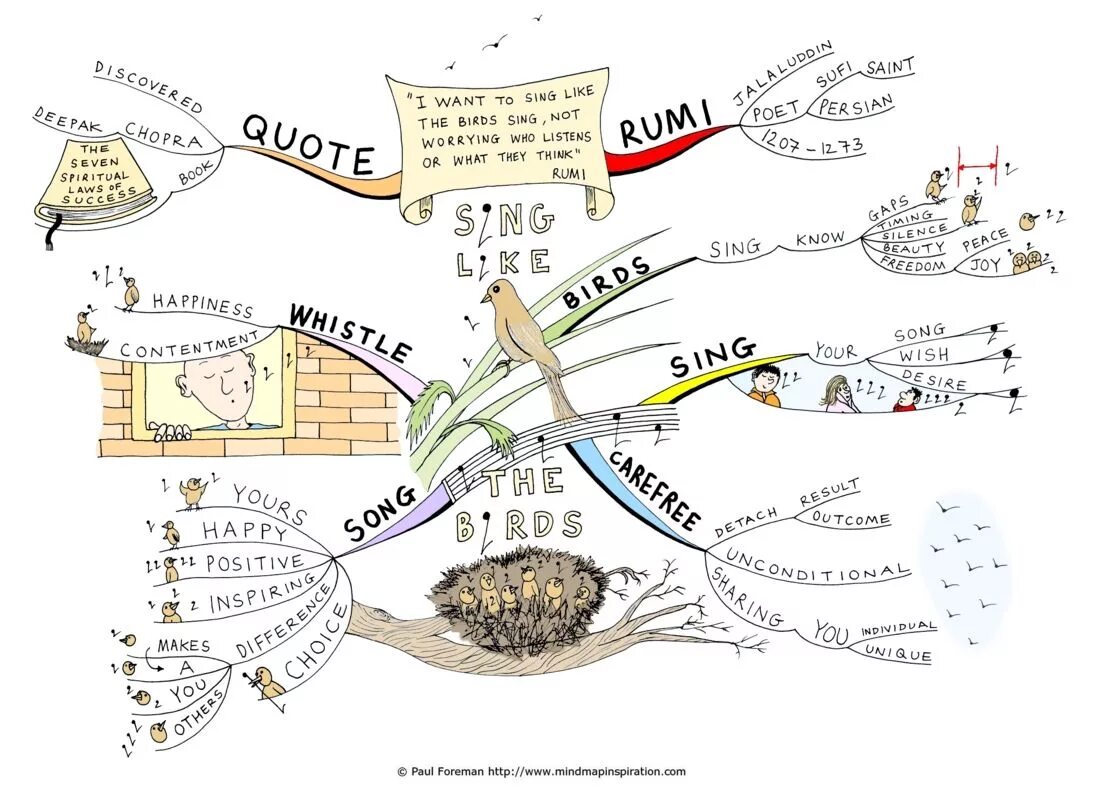 "I WANT TO SING LIKE
THE BIRDS SING, NOT
WORRYING WHO LISTENS
OR WHAT THEY THINK"
RUMI
SING
LIKE
THE
BIRDS
QUOTE
DISCOVERED
DEEPAK CHOPRA
BOOK
THE
SEVEN
SPIRITUAL
LAWS OF
SUCCESS
RUMI
JALALUDDIN
POET
SUFI
SAINT
PERSIAN
1207 - 1273
BIRDS
SING KNOW
GAPS
TIMING
SILENCE
BEAUTY
FREEDOM
PEACE
JOY
SING
YOUR
SONG
WISH
DESIRE
CAREFREE
DETACH
RESULT
OUTCOME
UNCONDITIONAL
SHARING
YOU
INDIVIDUAL
UNIQUE
SONG
YOURS
HAPPY
POSITIVE
INSPIRING
DIFFERENCE
MAKES
A
YOU
OTHERS
CHOICE
WHISTLE
HAPPINESS
CONTENTMENT
© Paul Foreman http://www.mindmapinspiration.com